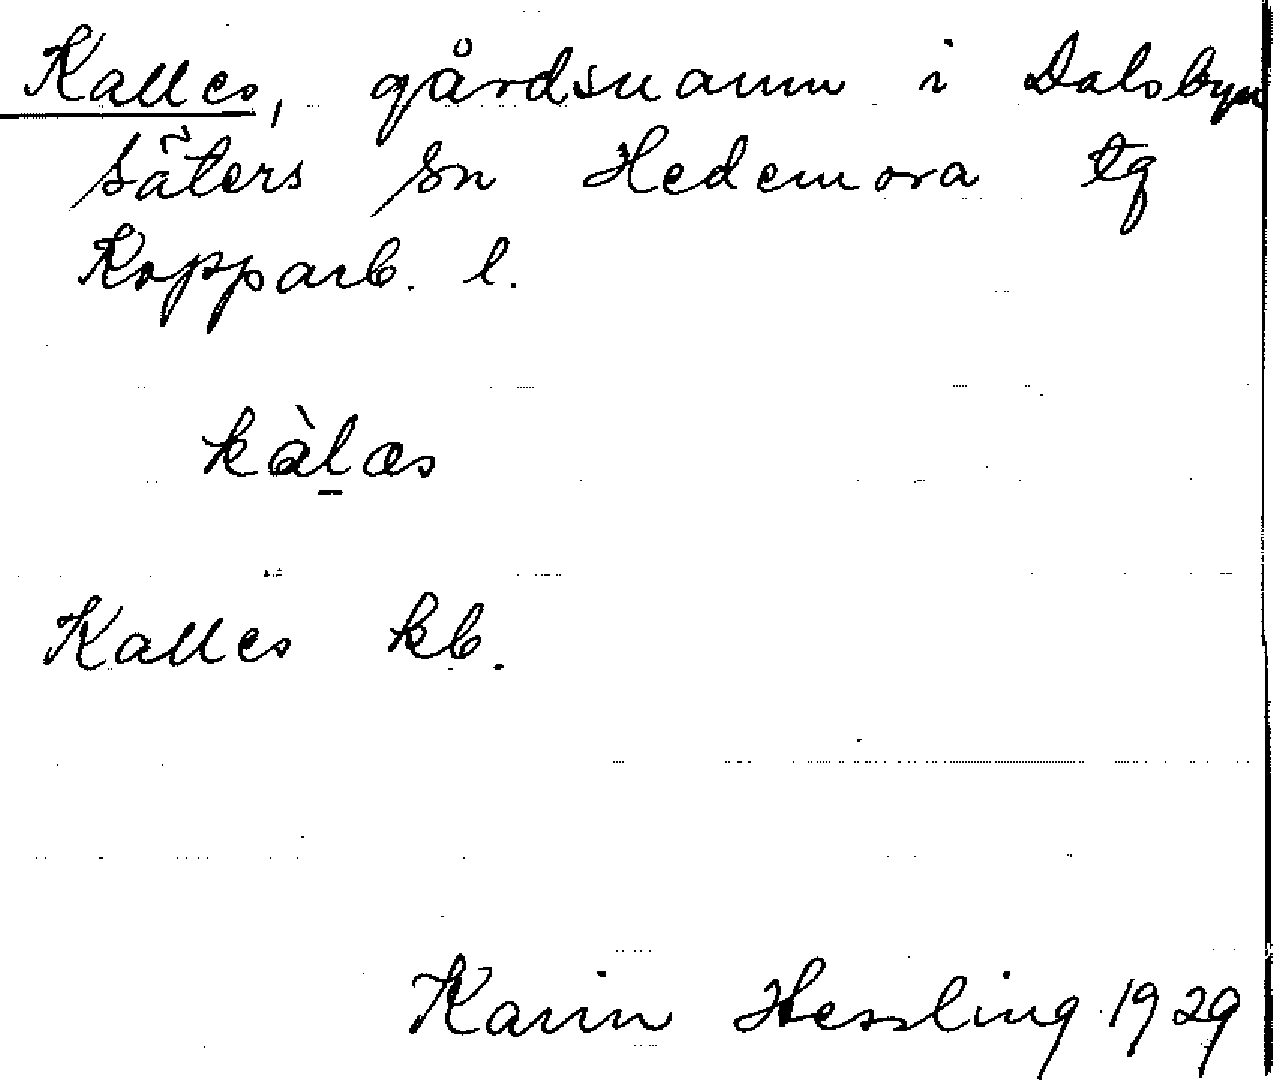 Kalles, gårdsnamn i Dalsbyn
Säters sn Hedemora tg
Kopparb. l.
kàl̠æs
Kalles kb.
Karin Hessling 1929